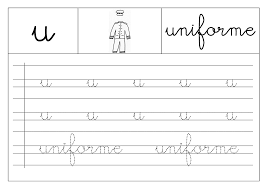 u uniforme
u u u u u
u u u u u
uniforme uniforme